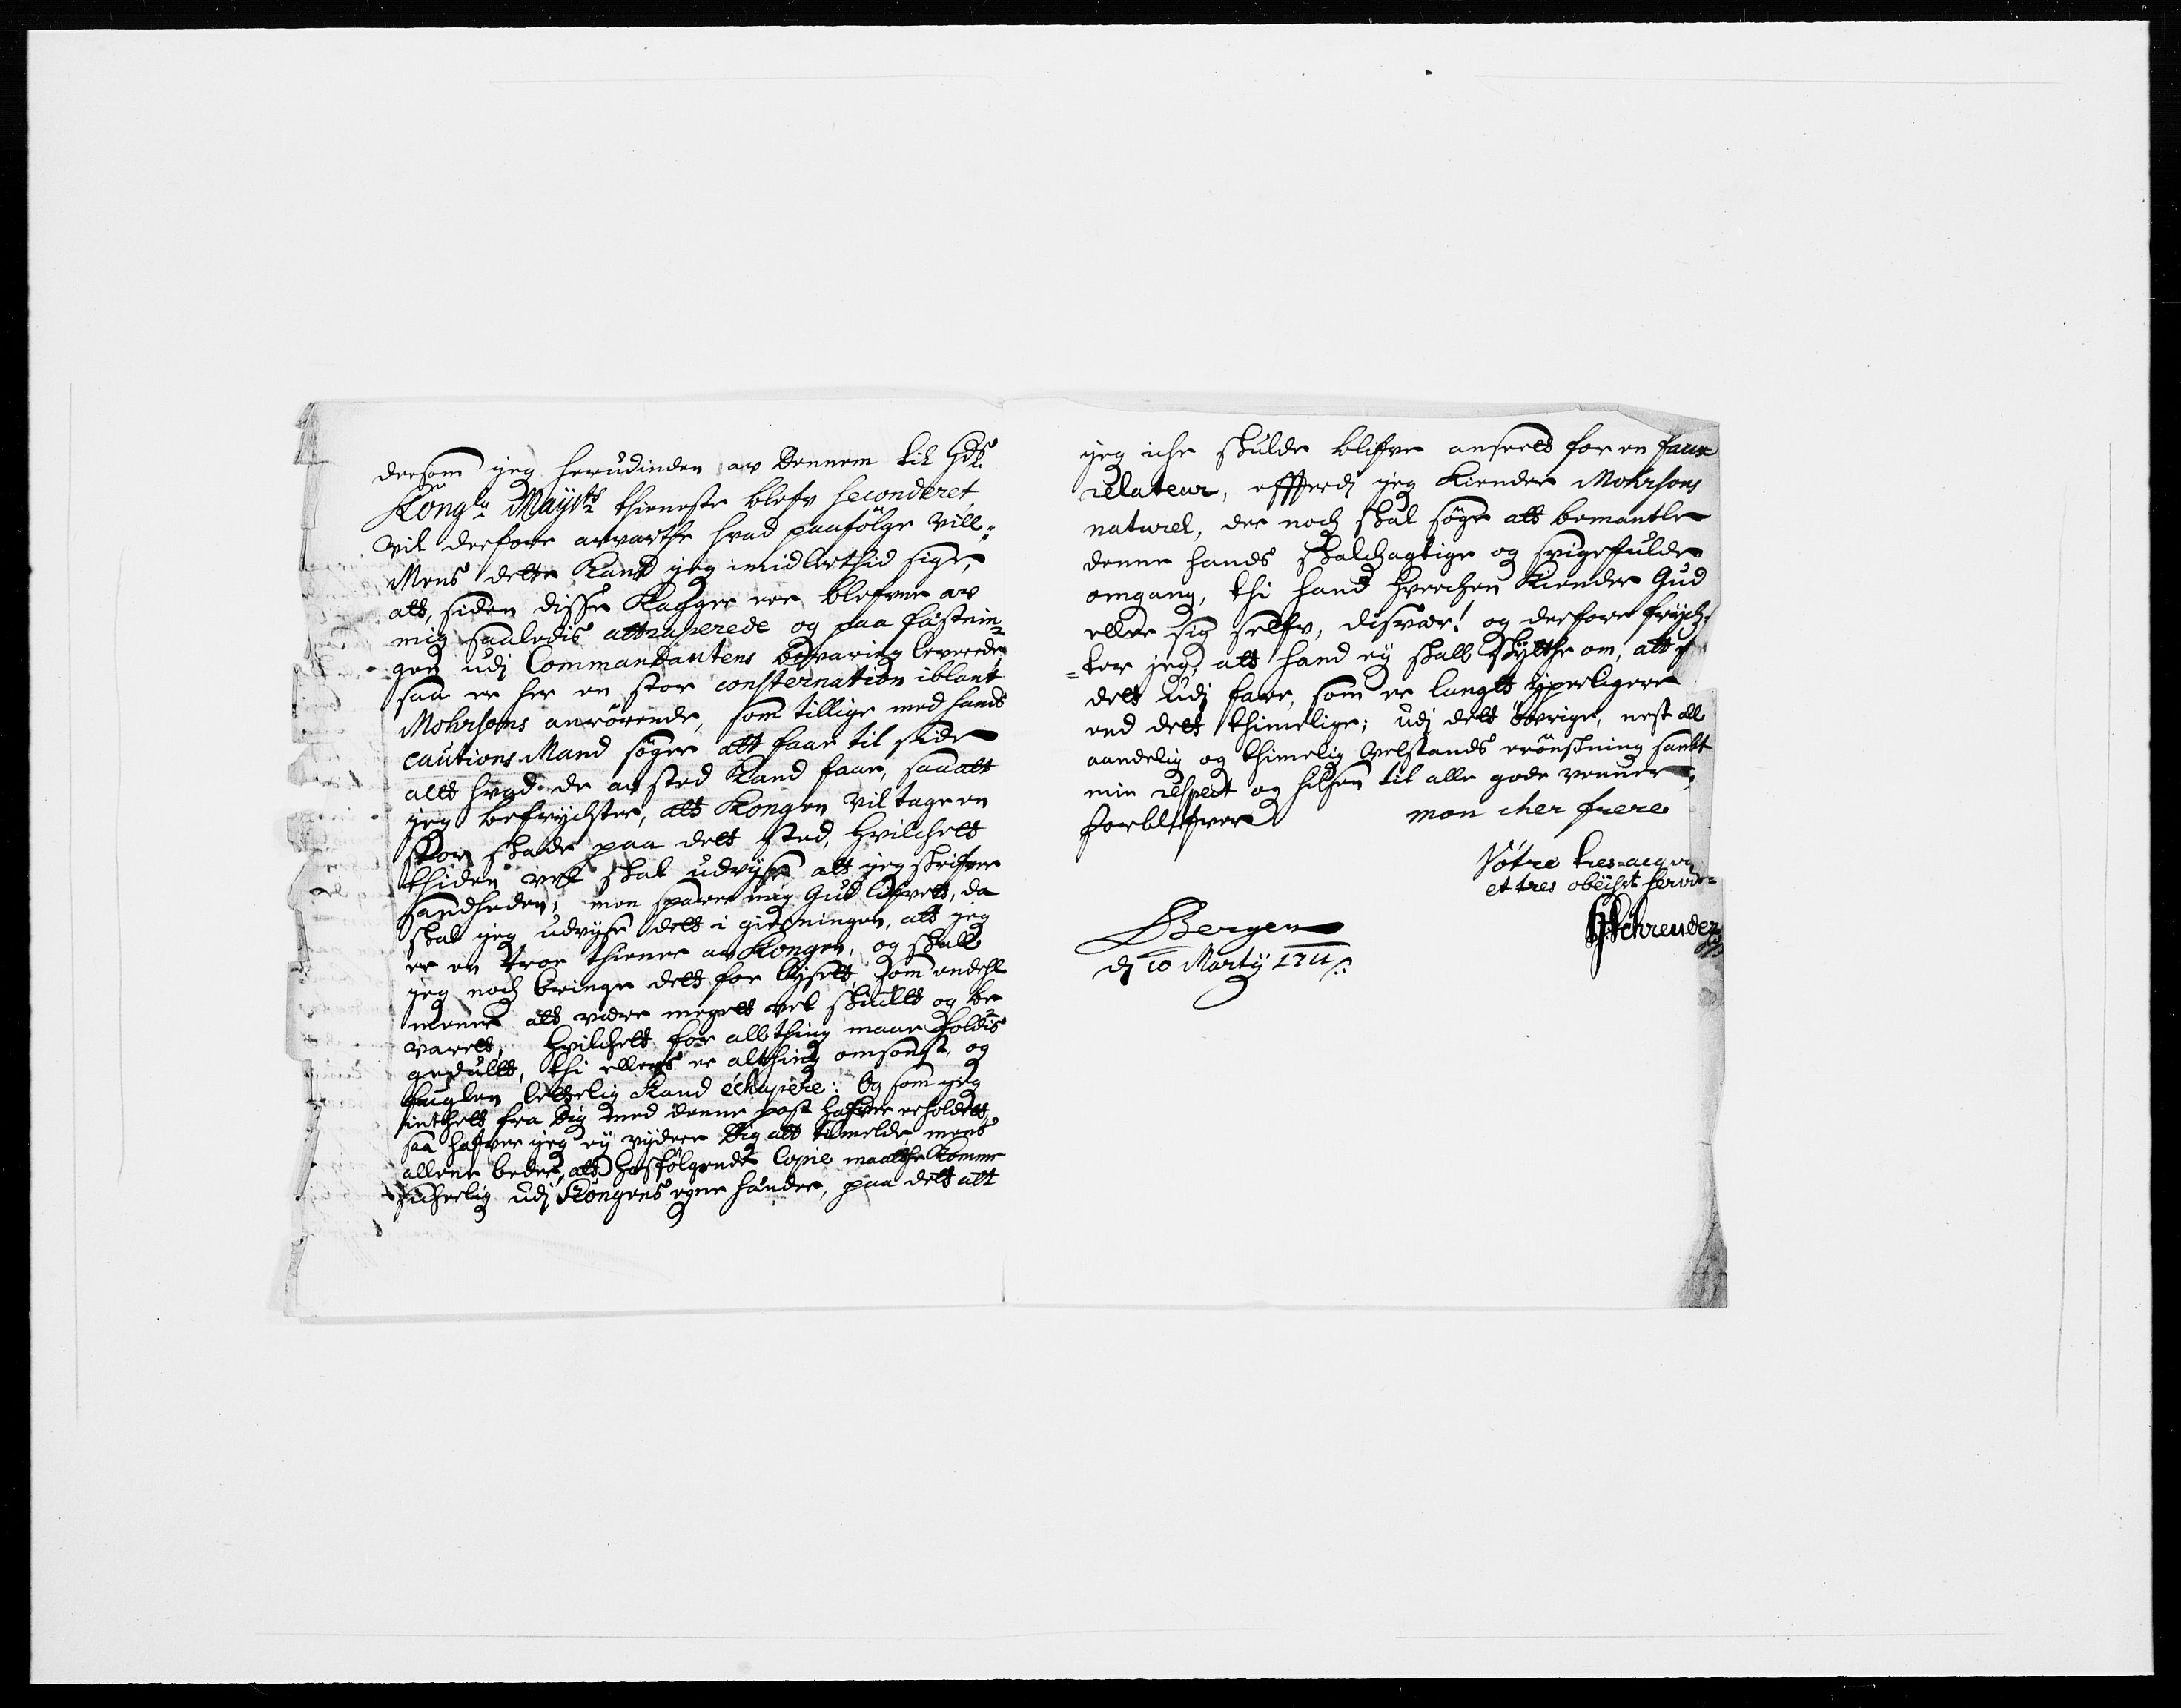 dersom jeg herudinden av Dennem til Hds
Kongl. Mayts thieneste blefv seconderet
vil derfore avvarthe hvad paafölge vill
Mens dette Kand jeg imidlerthid sige,
att, siden disse Kaager ere blefvne av
mig saaledis attraperede og paa fästnin=
gen udj Commandantens bevaring leverede
saa er her en stor consternation iblant
Mohrsons anrörende, som tillige med hans
cautions Mand söger att faae til side
allt hvad de av sted Kand faae, saa att
jeg befrychter, att Kongen vil tage en
stor skade paa dett sted, hvilchett
thiden vel skal udvyse att jeg skrifver
sandheden; men sparer mig Gud lifvett, da
skal jeg udvyse dett i gierningen, att jeg
er en troe thiener av Kongen, og skall
jeg noch bringe dett for lyset, som endehl
mener att være megett vel skiult og be=
varett, hvilchett for allthing maae holdis
gedullt, thi ellers er allthing omsonst, og
fuglen lettelig Kand échapére: Og som jeg
intthett fra Dig med denne post hafver erholdett,
saa hafver jeg ey vydere Dig att tilmelde, mens
allene beder, att hosfölgende Copie maatthe Komme
sicherlig udj Kongens egne hænder, paa dett att
jeg iche skulde blifve anseett for en faux
relateur, effterdj jeg Kiender Mohrsons
naturel, der noch skal söge att bemantle
denne hands skalchagtige og svigefulde
omgang, thi hand hverchen Kiender Gud
eller sig selfv, disvær! og derfore frych=
=ter jeg, att hand ey skall skytthe om, att
dett udj fare, som er langtt yperligere
end dett thimelige; udj dett övrige, nest all
aandelig og thimelig velstands erönskning sambt
min respect og hilsen til alle gode venner,
forblifver
mon cher frere
Vôtre tres=acqui
et tres obeiist servit=
HSchreuder
Bergen
dj 10 Marty 1711